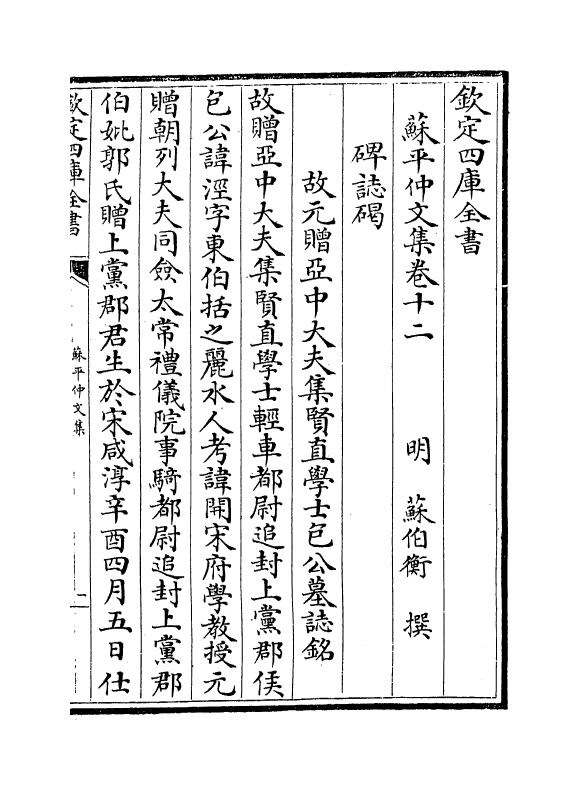 欽定四庫全書
蘇平仲文集卷十二　明　蘇伯衡　撰
碑誌碣
故元贈亞中大夫集賢直學士包公墓誌銘
故贈亞中大夫集賢直學士輕車都尉追封上黨郡侯
包公諱淫字東伯括之麗水人考諱開宋府學教授元
贈朝列大夫同僉太常禮儀院事騎都尉追封上黨郡
伯妣郭氏贈上黨郡君生於宋咸淳辛酉四月五日仕
欽定四庫全書
蘇平仲文集